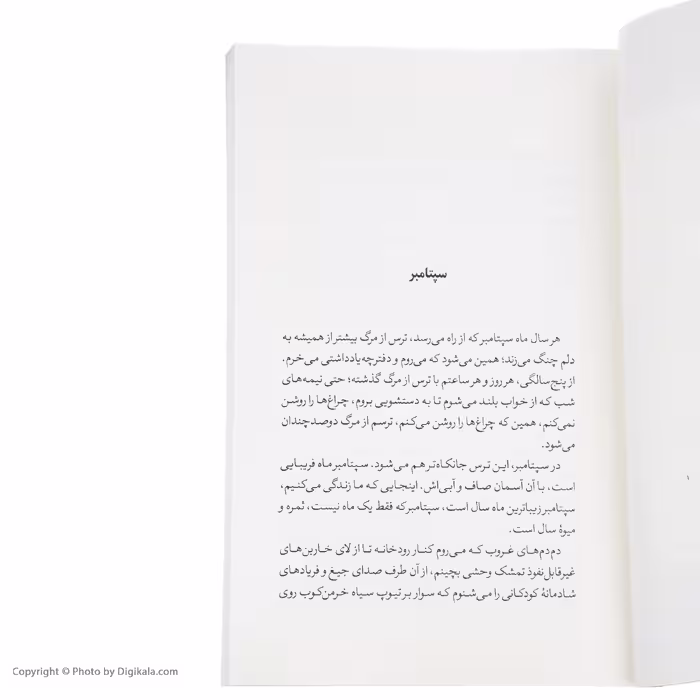 سپتامبر
هر سال ماه سپتامبر که از راه می‌رسد، ترس از مرگ بیشتر از همیشه به
دلم چنگ می‌زند؛ همین می‌شود که می‌روم و دفترچه‌یادداشتی می‌خرم.
از پنج‌سالگی، هر روز و هر ساعتم با ترس از مرگ گذشته؛ حتی نیمه‌های
شب که از خواب بلند می‌شوم تا به دستشویی بروم، چراغ‌ها را روشن
نمی‌کنم، همین که چراغ‌ها را روشن می‌کنم، ترسم از مرگ دوصدچندان
می‌شود.
در سپتامبر، این ترس جانکاه‌تر هم می‌شود. سپتامبر ماه فریبایی
است، با آن آسمان صاف و آبی‌اش. اینجایی که ما زندگی می‌کنیم،
سپتامبر زیباترین ماه سال است، سپتامبر که فقط یک ماه نیست، ثمره و
میوهٔ سال است.
دم‌دم‌های غروب که می‌روم کنار رودخانه تا از لای خاربن‌های
غیرقابل‌نفوذ تمشک وحشی بچینم، از آن طرف صدای جیغ و فریادهای
شادمانهٔ کودکانی را می‌شنوم که سوار بر تیوپ سیاه خرمن‌کوب روی
۱
Copyright © Photo by Digikala.com